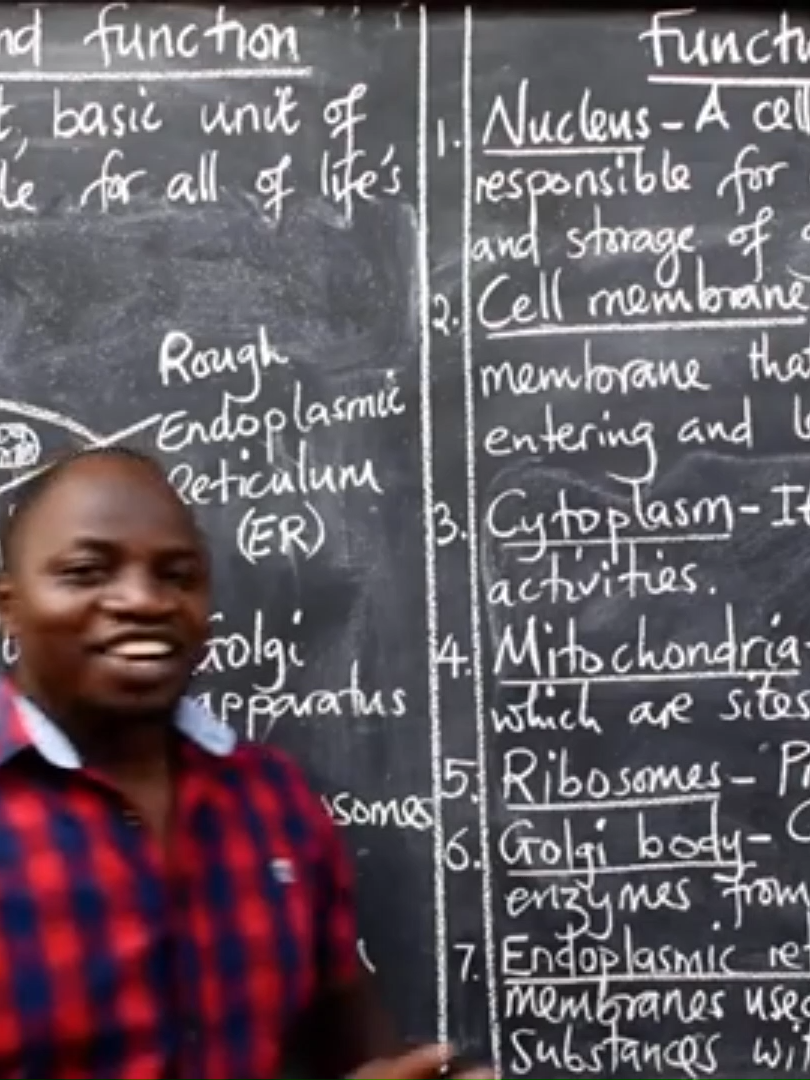 nd function
basic unit of
for all of life's
Rough
Endoplasmic
Reticulum
(ER)
Golgi
apparatus
somes
Functi
1. Nucleus - A cell
responsible for
and storage of
2. Cell membrane
membrane that
entering and
3. Cytoplasm - It
activities.
4. Mitochondria -
which are sites
5. Ribosomes -
6. Golgi body -
enzymes from
7. Endoplasmic ret
membranes used
Substances wit